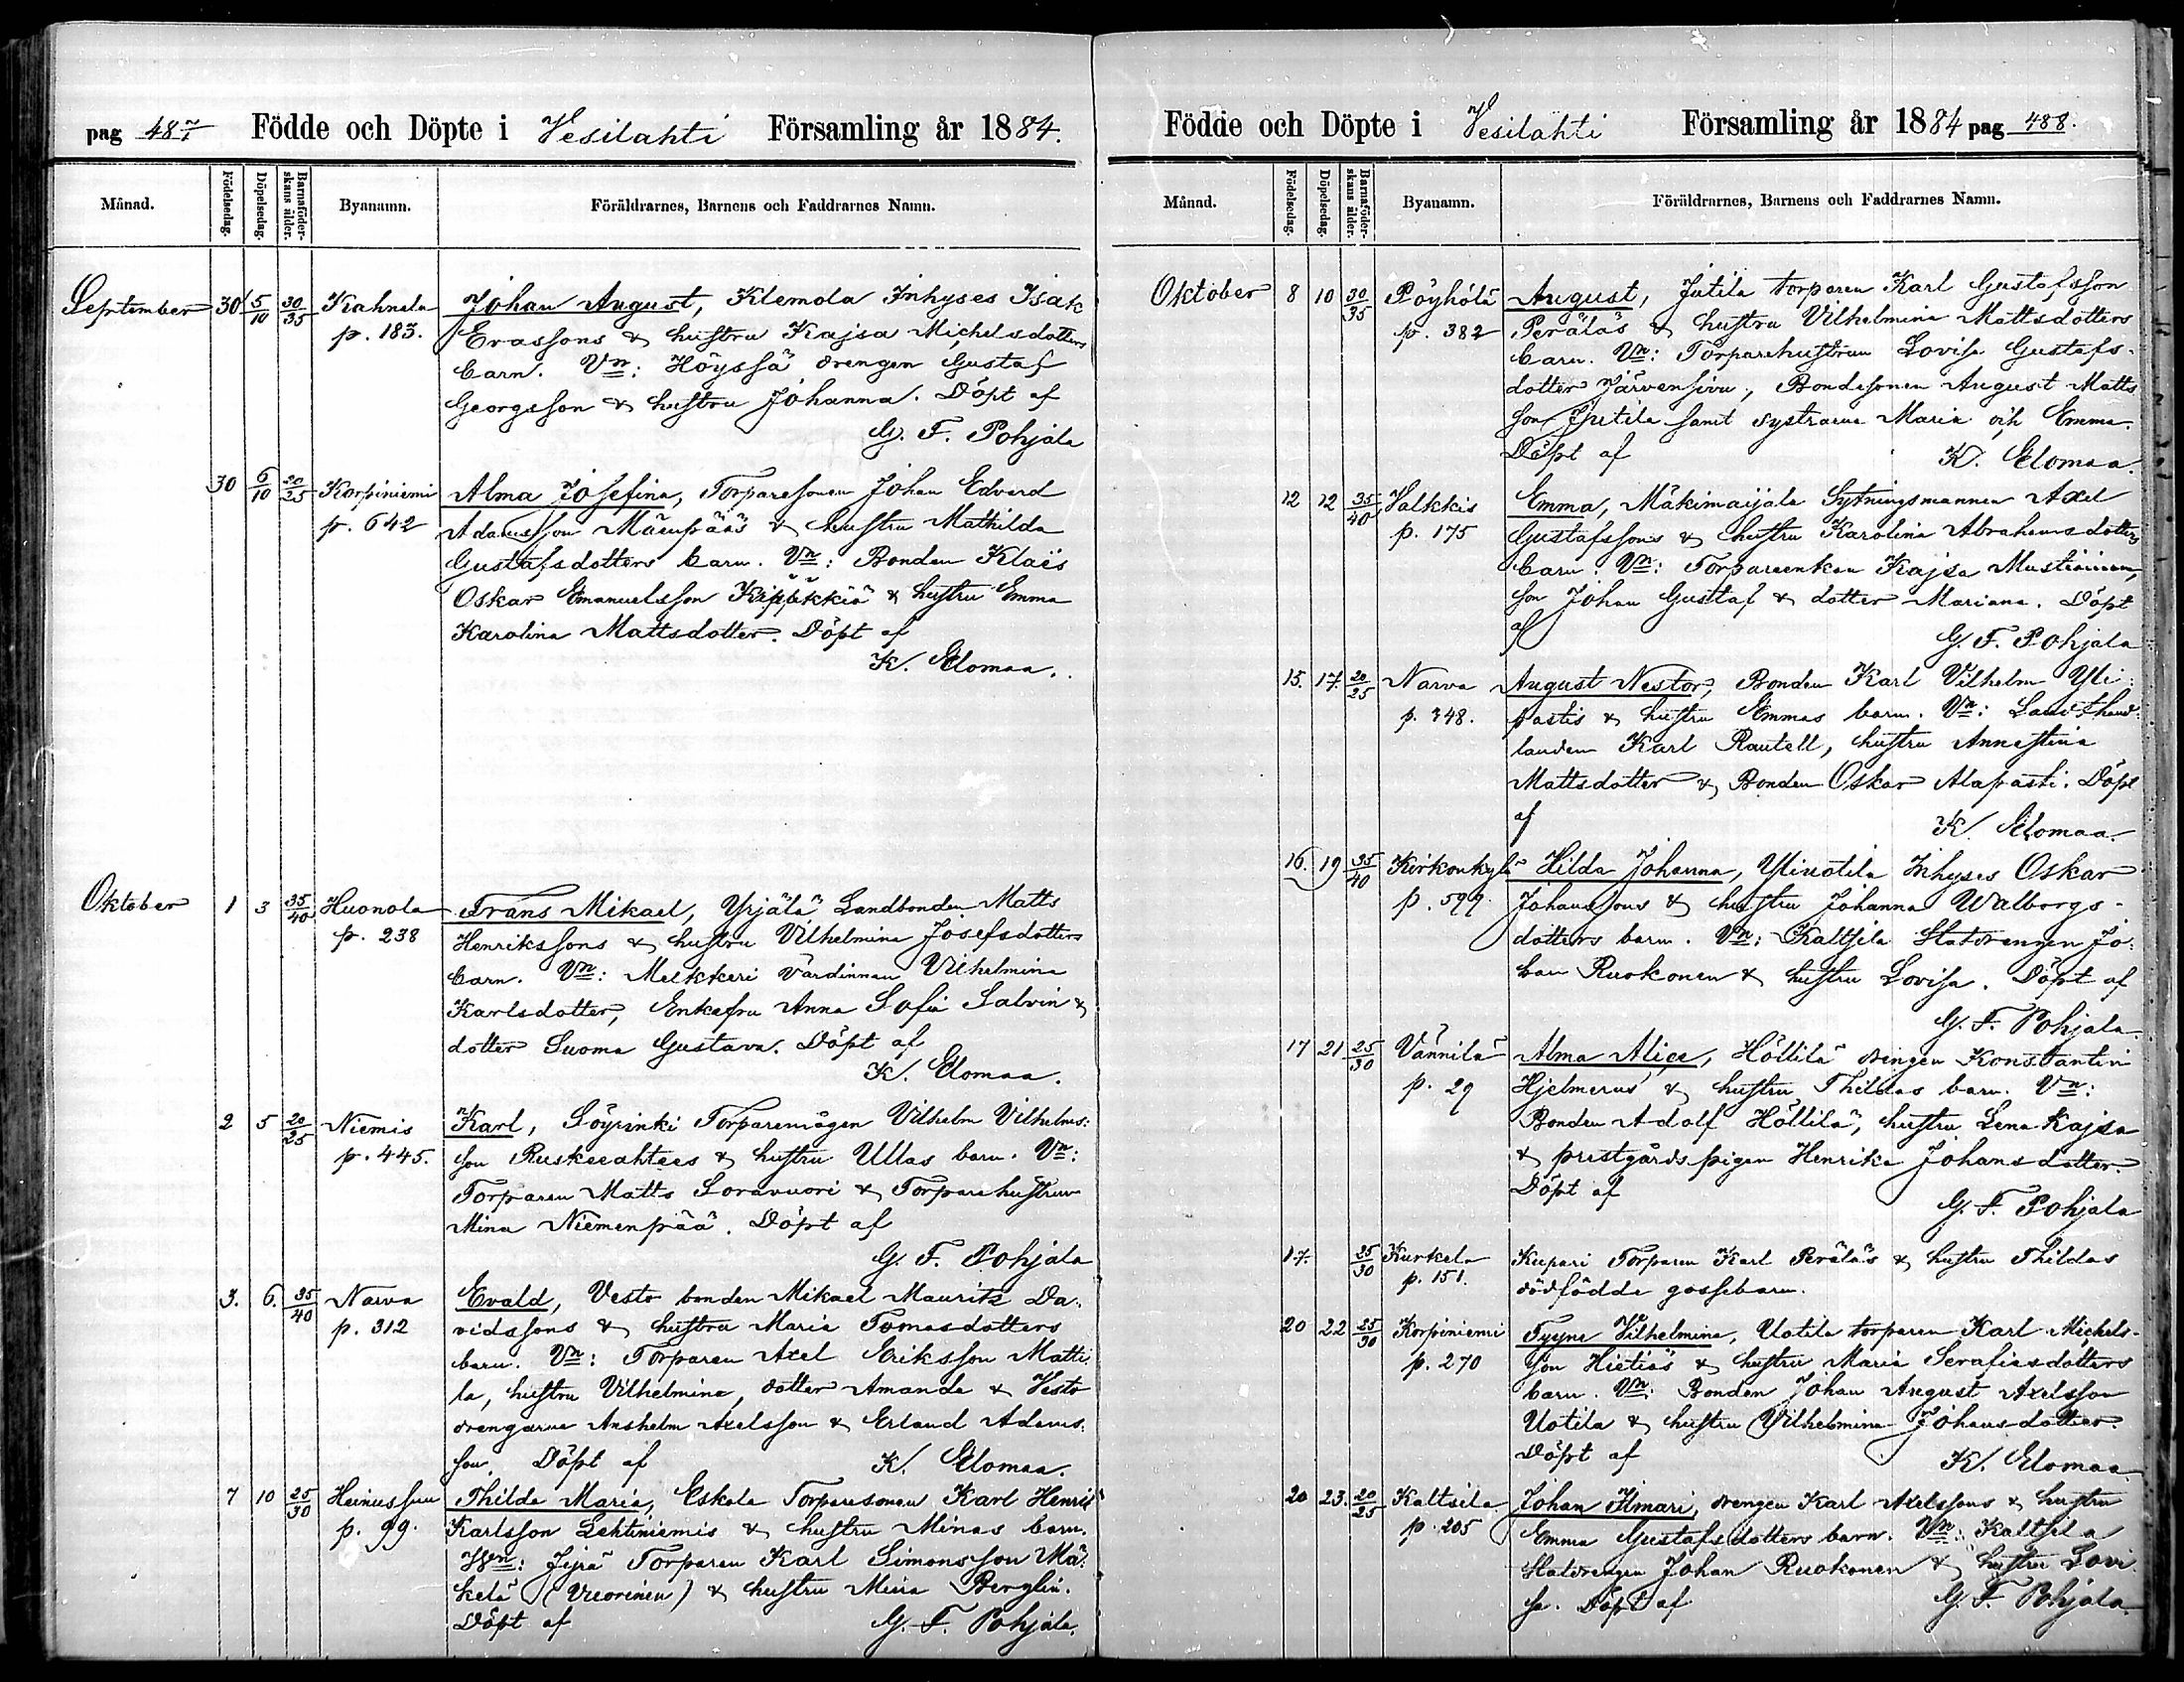 pag 487 Födde och Döpte i Vesilahti Församling år 1884.
Månad. Födelsedag. Döpelsedag. Barnaföderskans ålder. Byanamn. Föräldrarnes, Barnens och Faddrarnes Namn.
September 30 5/10 30/35 Kahnala Johan August, Klemola Inhyses Isak
p. 183. Erassons & hustru Kajsa Michelsdotters
barn. Vn: Höyssä drengen Gustaf
Georgsson & hustru Johanna. Döpt af
G. F. Pohjala
30 6/10 20/25 Korpiniemi Alma Josefina, Torparesonen Johan Edvard
p. 642 Adamsson Mäenpääs & hustru Mathilda
Gustafsdotters barn. Vn: Bonden Klaës
Oskar Emanuelsson & hustru Emma
Karolina Mattsdotter. Döpt af
K. Elomaa.
Oktober 1 3 35/40 Huonola Frans Mikael, Yrjälä Landbonden Matts
p. 238 Henrikssons & hustru Vilhelmina Josefsdotters
barn. Vn: Melkkeri värdinnan Vilhelmina
Karlsdotter, Enkefru Anna Sofia Salvin &
dotter Suoma Gustava. Döpt af
K. Elomaa.
2 5 20/25 Niemis Karl, Söyrinki Torparemågen Vilhelm Vilhelms-
p. 445. son Ruskeeahtees & hustru Ullas barn. Vn:
Torparen Matts Soravuori & Torparehustrun
Mina Niemenpää. Döpt af
G. F. Pohjala
3. 6. 35/40 Narva Evald, Vesto bonden Mikael Mauritz Da-
p. 312 vidssons & hustru Maria Tomasdotters
barn. Vn: Torparen Axel Eriksson Matti-
la, hustru Vilhelmina, dotter Amanda & Vesto
drengarne Anshelm Axelsson & Erland Adams-
son. Döpt af K. Elomaa.
7 10 25/30 Heinussuu Thilda Maria, Eskola Torparesonen Karl Henrik
p. 99. Karlsson Lehtiniemis & hustru Minas barn.
Vn: Jyrä Torparen Karl Simonsson Mä-
kelä (Vuorinen) & hustru Mina Berglin.
Döpt af G. F. Pohjala.
Födde och Döpte i Vesilahti Församling år 1884 pag 488.
Månad. Födelsedag. Döpelsedag. Barnaföderskans ålder. Byanamn. Föräldrarnes, Barnens och Faddrarnes Namn.
Oktober 8 10 30/35 Pöyhölä August, Jutila torparen Karl Gustafsson
p. 382 Peräläs & hustru Vilhelmina Mattsdotters
barn. Vn: Torparehustrun Lovisa Gustafs-
dotter Järvensivu, Bondesonen August Matts-
son Jutila samt systrarne Maria och Emma.
Döpt af K. Elomaa.
12 12 35/40 Valkkis Emma, Mäkimaijala Sytningsmannen Axel
p. 175 Gustafssons & hustru Karolina Abrahamsdotters
barn. Vn: Torpareenkan Kajsa Mustiainen,
son Johan Gustaf & dotter Mariana. Döpt
af
G. F. Pohjala
15. 17. 20/25 Narva August Nestor, Bonden Karl Vilhelm Yli-
p. 348. pastis & hustru Emmas barn. Vn: Landthand-
landen Karl Rautell, hustru Annastina
Mattsdotter & Bonden Oskar Alapasti. Döpt
af K. Elomaa.
16. 19 35/40 Kirkonkylä Hilda Johanna, Yliuotila Inhyses Oskar
p. 599. Johanssons & hustru Johanna Walborgs-
dotters barn. Vn: Kaltsila Statdrengen Jo-
han Ruokonen & hustru Lovisa. Döpt af
G. F. Pohjala.
17 21 25/30 Vännilä Alma Alice, Höllilä drengen Konstantin
p. 29 Hjelmerus & hustru Thildas barn. Vn:
Bonden Adolf Höllilä, hustru Lena Kajsa
& prestgårds pigan Henrika Johansdotter.
Döpt af
G. F. Pohjala
17. 25/30 Kurkela Kupari Torparen Karl Peräläs & hustru Thildas
p. 151. dödfödde gossebarn.
20 22 25/30 Korpiniemi Tyyne Vilhelmina, Uotila torparen Karl Michels-
p. 270 son Hietiäs & hustru Maria Serafiasdotters
barn. Vn: Bonden Johan August Axelsson
Uotila & hustru Vilhelmina Johansdotter.
Döpt af K. Elomaa
20 23. 20/25 Kaltsila Johan Ilmari, drengen Karl Axelssons & hustru
p. 205 Emma Gustafsdotters barn. Vn: Kaltsila
Statdrengen Johan Ruokonen & hustru Lovi-
sa. Döpt af G. F. Pohjala.